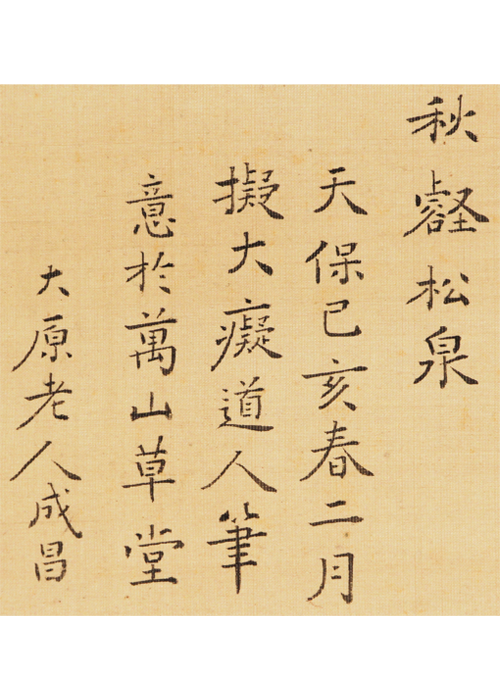 秋壑松泉
天保己亥春二月
擬大癡道人筆
意於萬山草堂
大原老人成昌